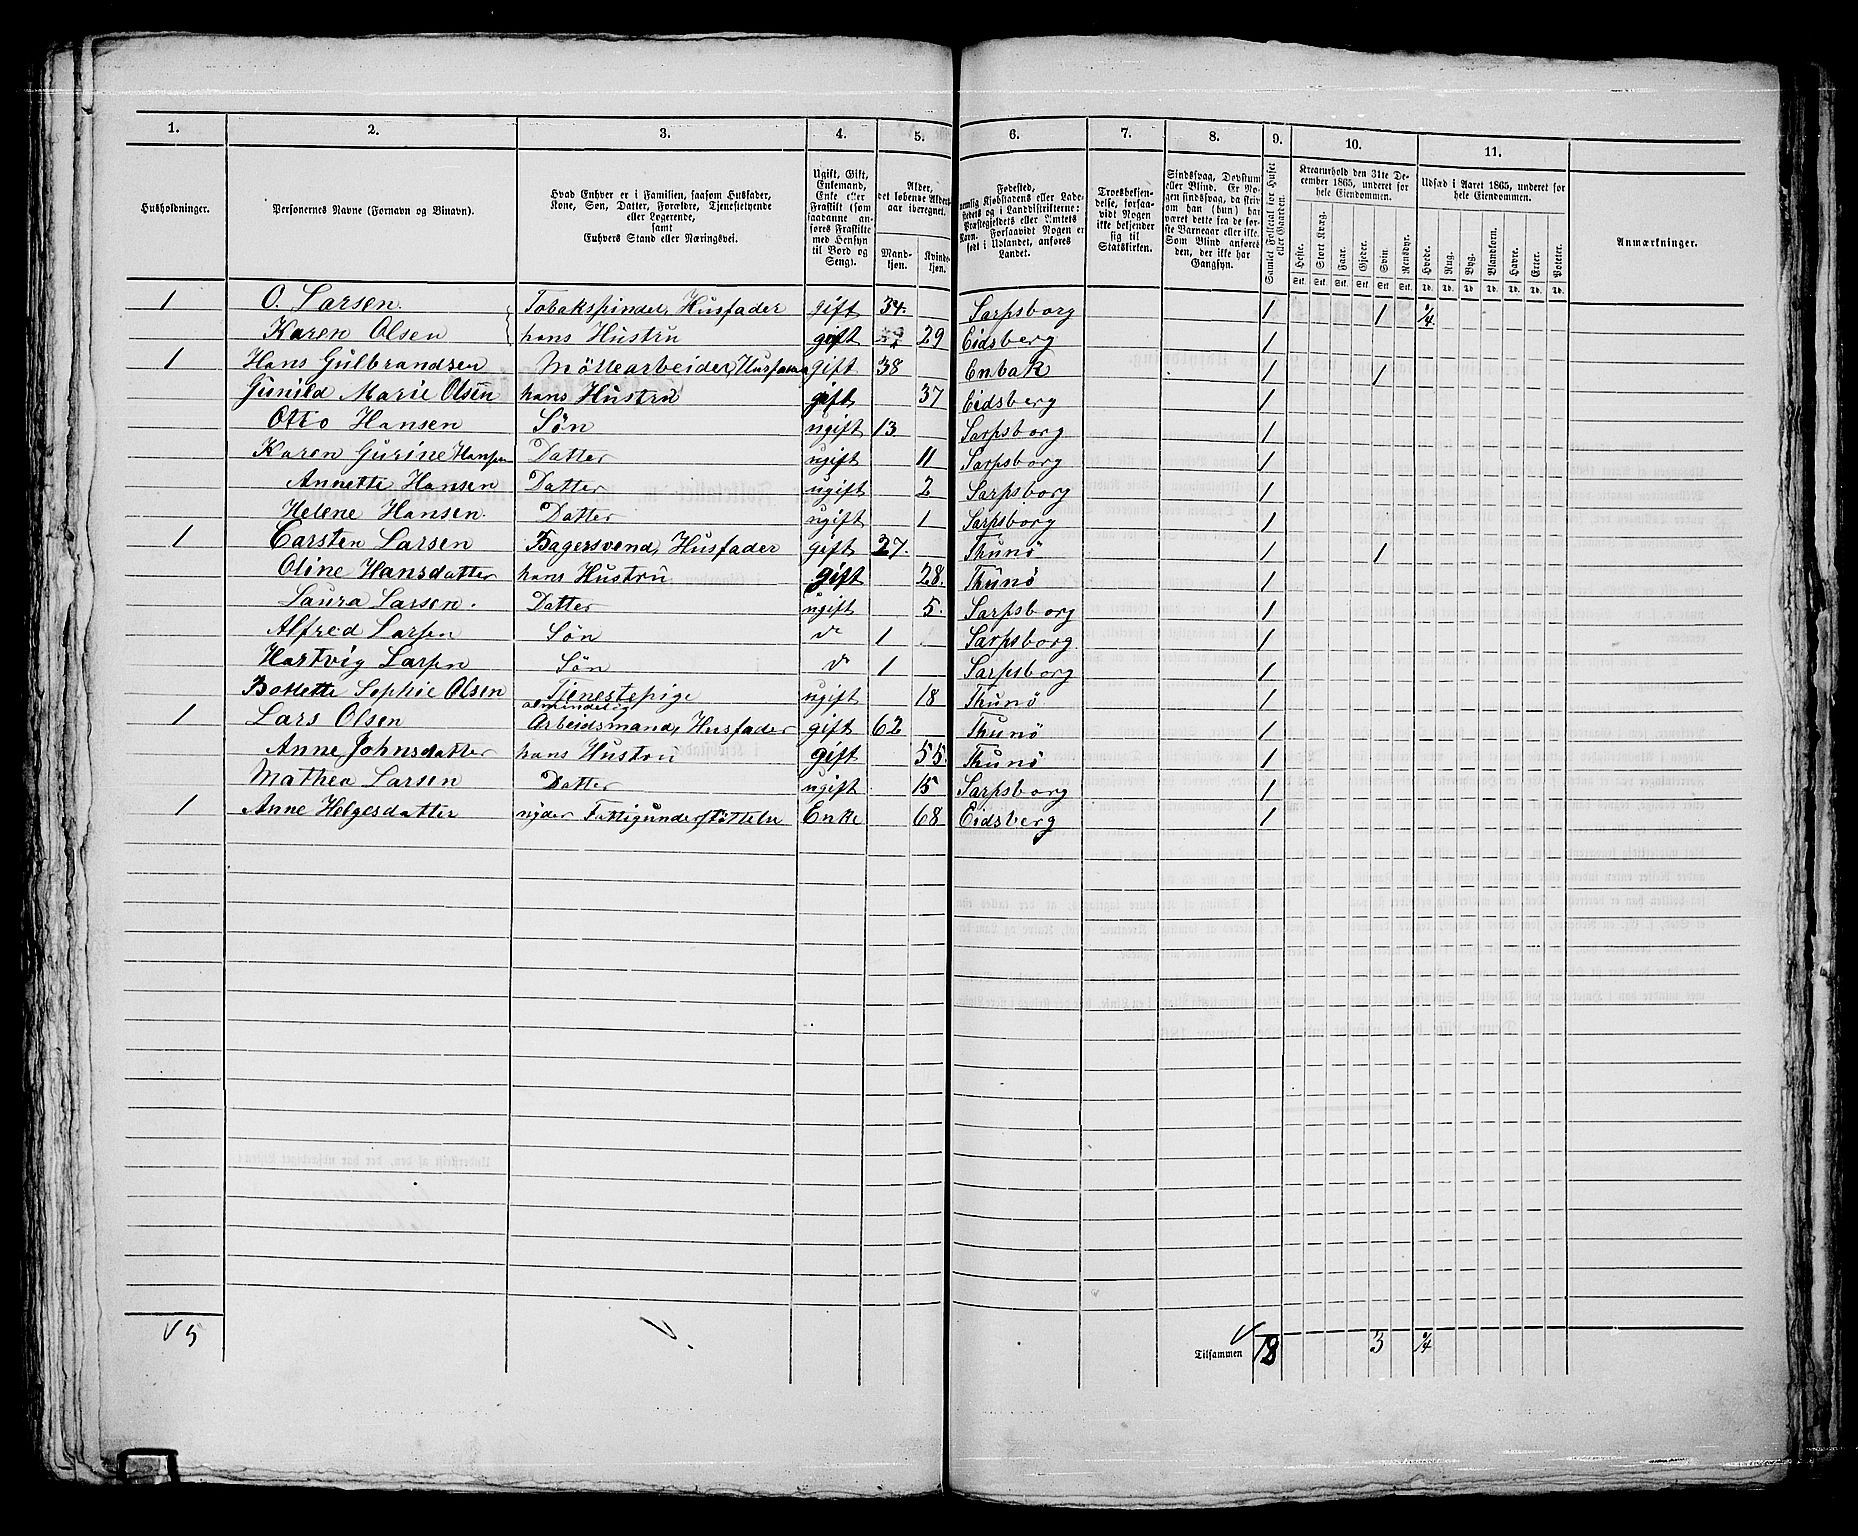 1. 2. 3. 4. 5. 6. 7. 8. 9. 10. 11.
Husholdninger.
Personernes Navne (Fornavn og Binavn).
Hvad Enhver er i Familien, saasom Husfader, Kone, Søn, Datter, Forældre, Tjenestetyende eller Logerende, samt Enhvers Stand eller Næringsvei.
Ugift, Gift, Enkemand, Enke eller Fraskilt (som saadanne anføres Fraskilte med Hensyn til Bord og Seng).
Alder, det løbende Aldersaar iberegnet.
Mandkjøn. Kvindekjøn.
Fødested, nemlig Kjøbstadens eller Ladestedets og i Landdistrikterne: Præstegjeldets eller Amtets Navn. Forsaavidt Nogen er født i Udlandet, anføres Landet.
Troesbekjendelse, forsaavidt Nogen ikke bekjender sig til Statskirken.
Sindssvag, Døvstum eller Blind. Er Nogen sindssvag, da skriv om han (hun) har været dette fra de første Barneaar eller ikke. Som Blind anføres den, der ikke har Gangsyn.
Samlet Folketal for Huset eller Gaarden.
Kreaturhold den 31te December 1865, underet for hele Eiendommen.
Heste. Stort Kvæg. Faar. Gjeder. Svin. Rensdyr.
Stk. Stk. Stk. Stk. Stk. Stk.
Udsæd i Aaret 1865, underet for hele Eiendommen.
Hvede. Rug. Byg. Blandkorn. Havre. Erter. Poteter.
Td. Td. Td. Td. Td. Td. Td.
Anmærkninger.
1 O. Larsen Tobakspinder, Husfader gift 34. Sarpsborg 1 1 1/4
Karen Olsen hans Hustru gift 29 Eidsberg 1
1 Hans Gulbrandsen Möllearbeider, Husfader gift 38 Enbak 1 1
Gunild Marie Olsen hans Hustru gift 37 Eidsberg 1
Otto Hansen Sön ugift 13 Sarpsborg 1
Karen Gurine Hansen Datter ugift 11 Sarpsborg 1
Annette Hansen Datter ugift 2 Sarpsborg 1
Helene Hansen Datter ugift 1 Sarpsborg 1
1 Carsten Larsen Bagersvend, Husfader gift 27. Thunö 1 1
Oline Hansdatter hans Hustru gift 28. Thunö 1
Laura Larsen. Datter ugift 5. Sarpsborg 1
Alfred Larsen Sön do 1 Sarpsborg 1
Hartvig Larsen Sön do 1 Sarpsborg 1
Bollette Sophie Olsen Tjenestepige ugift 18 Thunö 1
1 Lars Olsen almindelig Arbeidsmand, Husfader gift 62 Thunö 1
Anne Johnsdatter hans Hustru gift 55. Thunö 1
Mathea Larsen Datter ugift 15 Sarpsborg 1
1 Anne Helgesdatter nyder Fattigunderstöttelse Enke 68 Eidsberg 1
5 Tilsammen 18 3 1/4